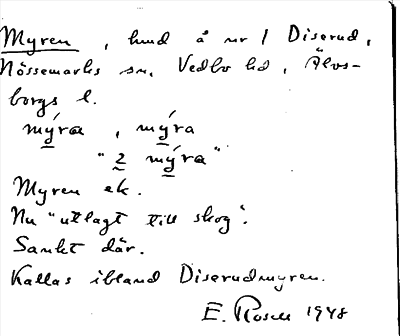 Myren , hund å nr 1 Diserud,
Nössemarks sn, Vedbo hd, Älvs-
borgs l.
mýra , mýra
"2 mýra"
Myren ek.
Nu "utlagt till skog".
Sankt där.
Kallas ibland Diserudmyren.
E. Rosell 1948